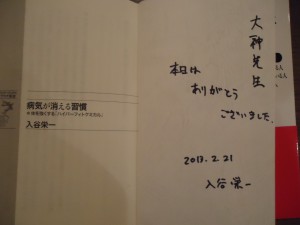 病気が消える習慣
入谷栄一
大神先生
本日は
ありがとう
ございました。
2013.2.21
入谷栄一